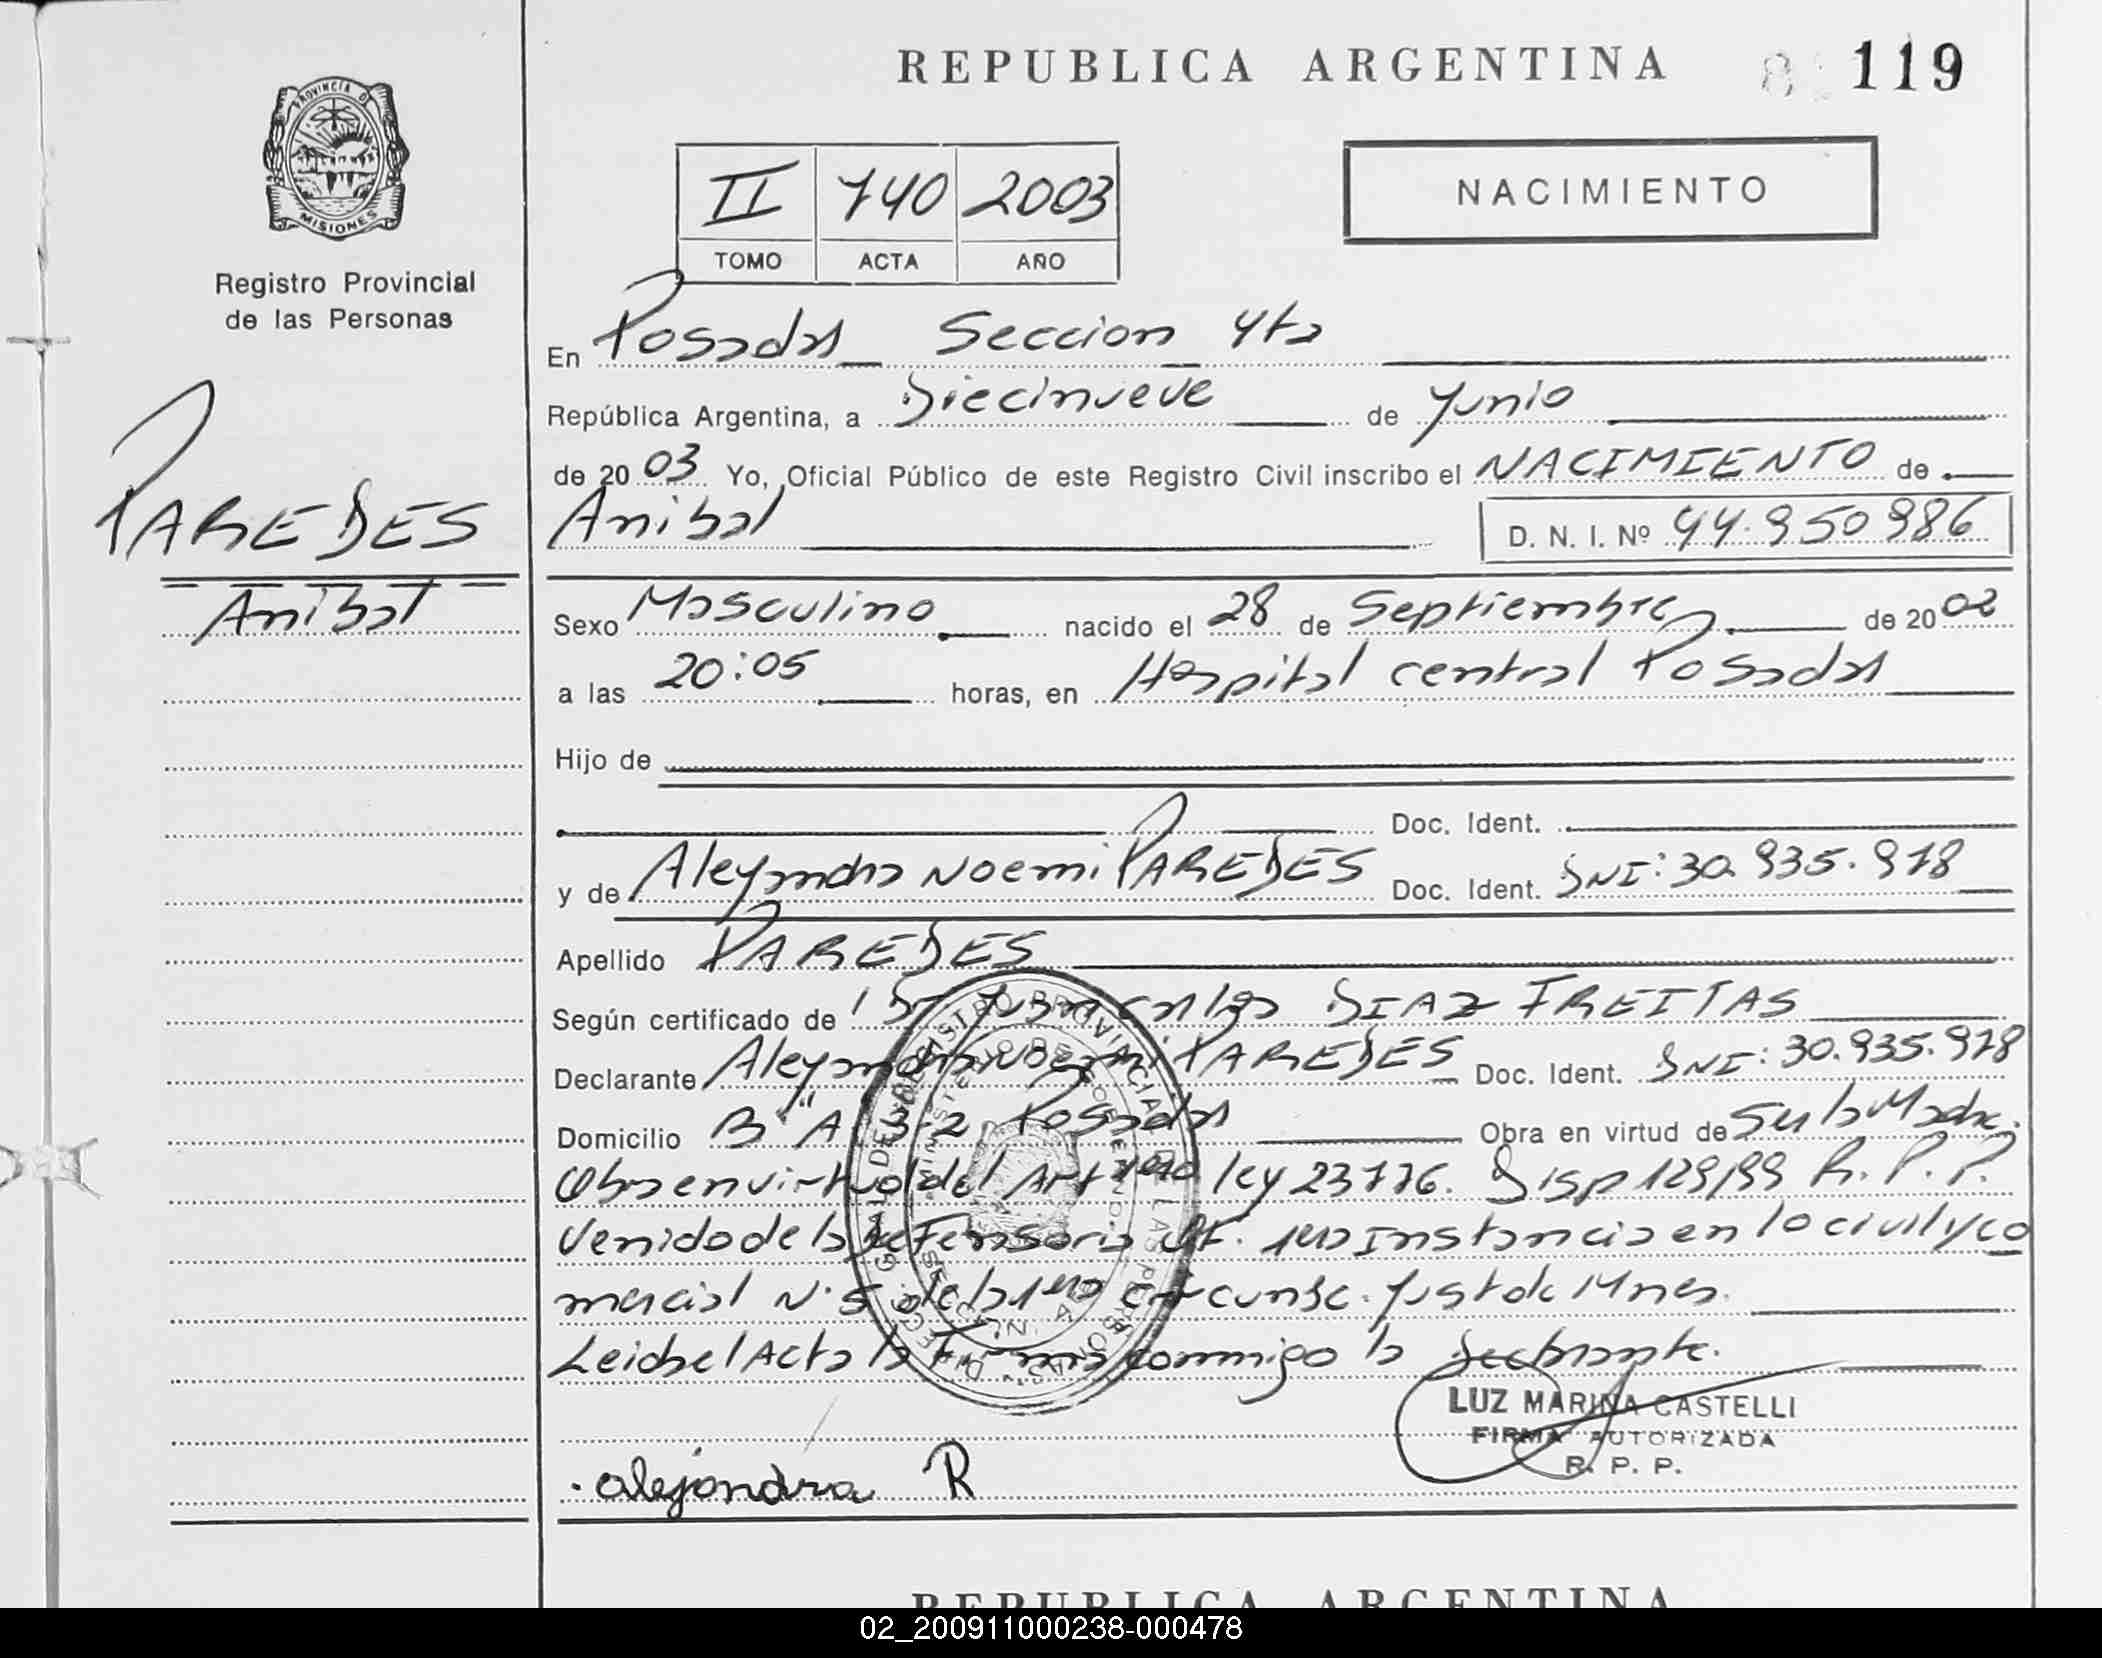 REPUBLICA ARGENTINA
119
PROVINCIA D
MISIONES
Registro Provincial
de las Personas
II 740 2003
TOMO ACTA AÑO
NACIMIENTO
En Posadas Seccion 4ta
República Argentina, a Diecinueve de Junio
de 2003 Yo, Oficial Público de este Registro Civil inscribo el NACIMIENTO de
Anibal D. N. I. Nº 44.950986
PAREDES
Anibal
Sexo Masculino nacido el 28 de Septiembre de 2002
a las 20:05 horas, en Hospital central Posadas
Hijo de
Doc. Ident.
y de Alejandra Noemi PAREDES Doc. Ident. DNI: 30.935.978
Apellido PAREDES
Según certificado de Dr Juan carlos DIAZ FREITAS
Declarante Alejandra Noemi PAREDES Doc. Ident. DNI: 30.935.978
Domicilio B° "A" 3-2 Posadas Obra en virtud de Ser la Madre.
Obra en virtud del Art ley 23776. Disp 129/99 R.P.P.
Venido de la Defensoria Of. 1ra Instancia en lo civil y co
mercial N° 5 de la 1ra circunsc. Just de Mnes.
Leida el Acta la firma conmigo la Declarante.
LUZ MARINA CASTELLI
FIRMA AUTORIZADA
R. P. P.
alejandra R
REPUBLICA ARGENTINA
02_200911000238-000478